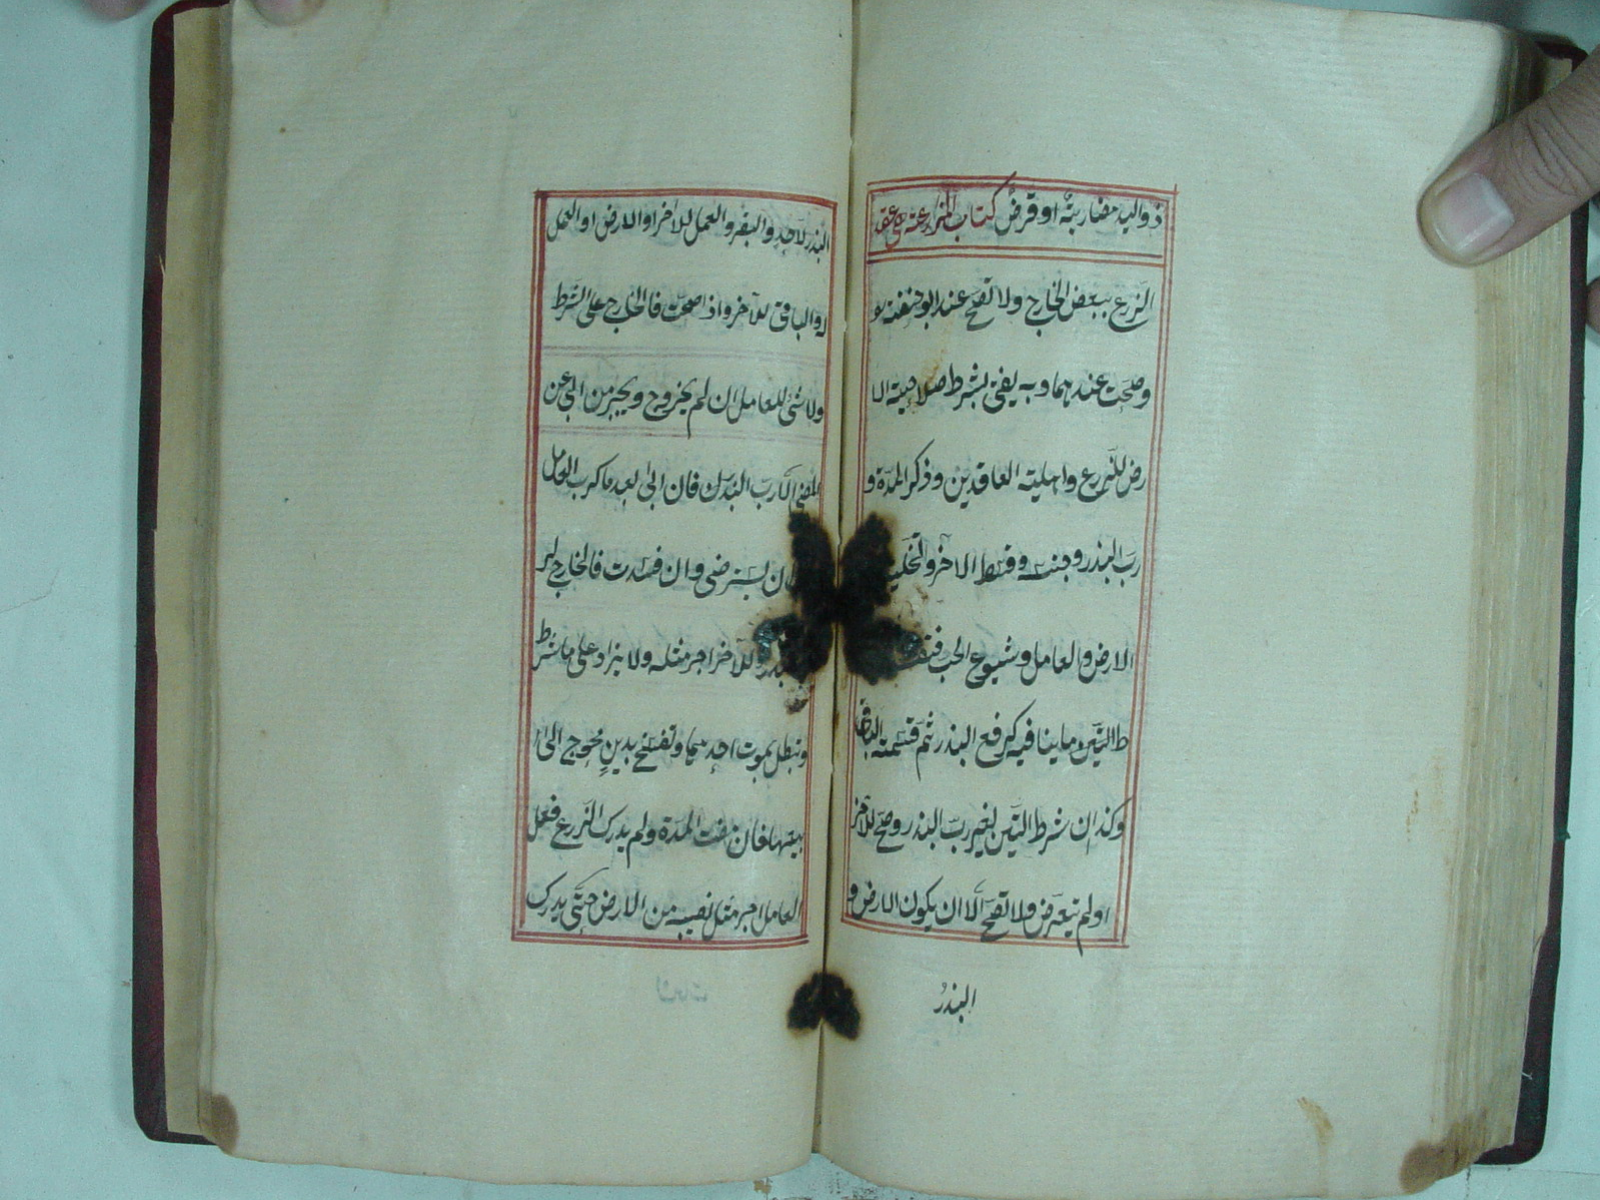 ذو اليد مضاربته او قرض كتاب المزارعة هى عقد
الزرع ببعض الخارج ولا تصح عند ابو حنفته
وصحت عندهما وبه يفتى بشرط صلاحيته الا
رض للزرع واهليته العاقدين وذكر المدة و
رب البذر وجنسه وقسط الاخر والتخلية
الارض والعامل وشيوع الحب
ط التبن وما ينافيه كرفع البذر ثم قسمته الباقى
وكذا ان شرط التبن لغير رب البذر وصح للاخر
او لم يتعرض ولا تصح الا ان يكون الارض و
البذر
البذر لاحد والبقر والعمل للاخر او الارض او العمل
له والباقى للآخر واذا صحت فالخارج على الشرط
ولا شئ للعامل ان لم يخروج ويجبر من ابى عن
المضى الا رب البذر فان ابى بعد ما كرب العامل
ان يسترضى وان فسدت فالخارج لر
وللآخر اجر مثله ولا يزاد على ما شرط
وتبطل بموت احدهما وتفسخ بدين محوج الى
بيعها فان مضت المدة ولم يدرك الزرع فعل
العامل اجر مثل نصيبه من الارض حتى يدرك